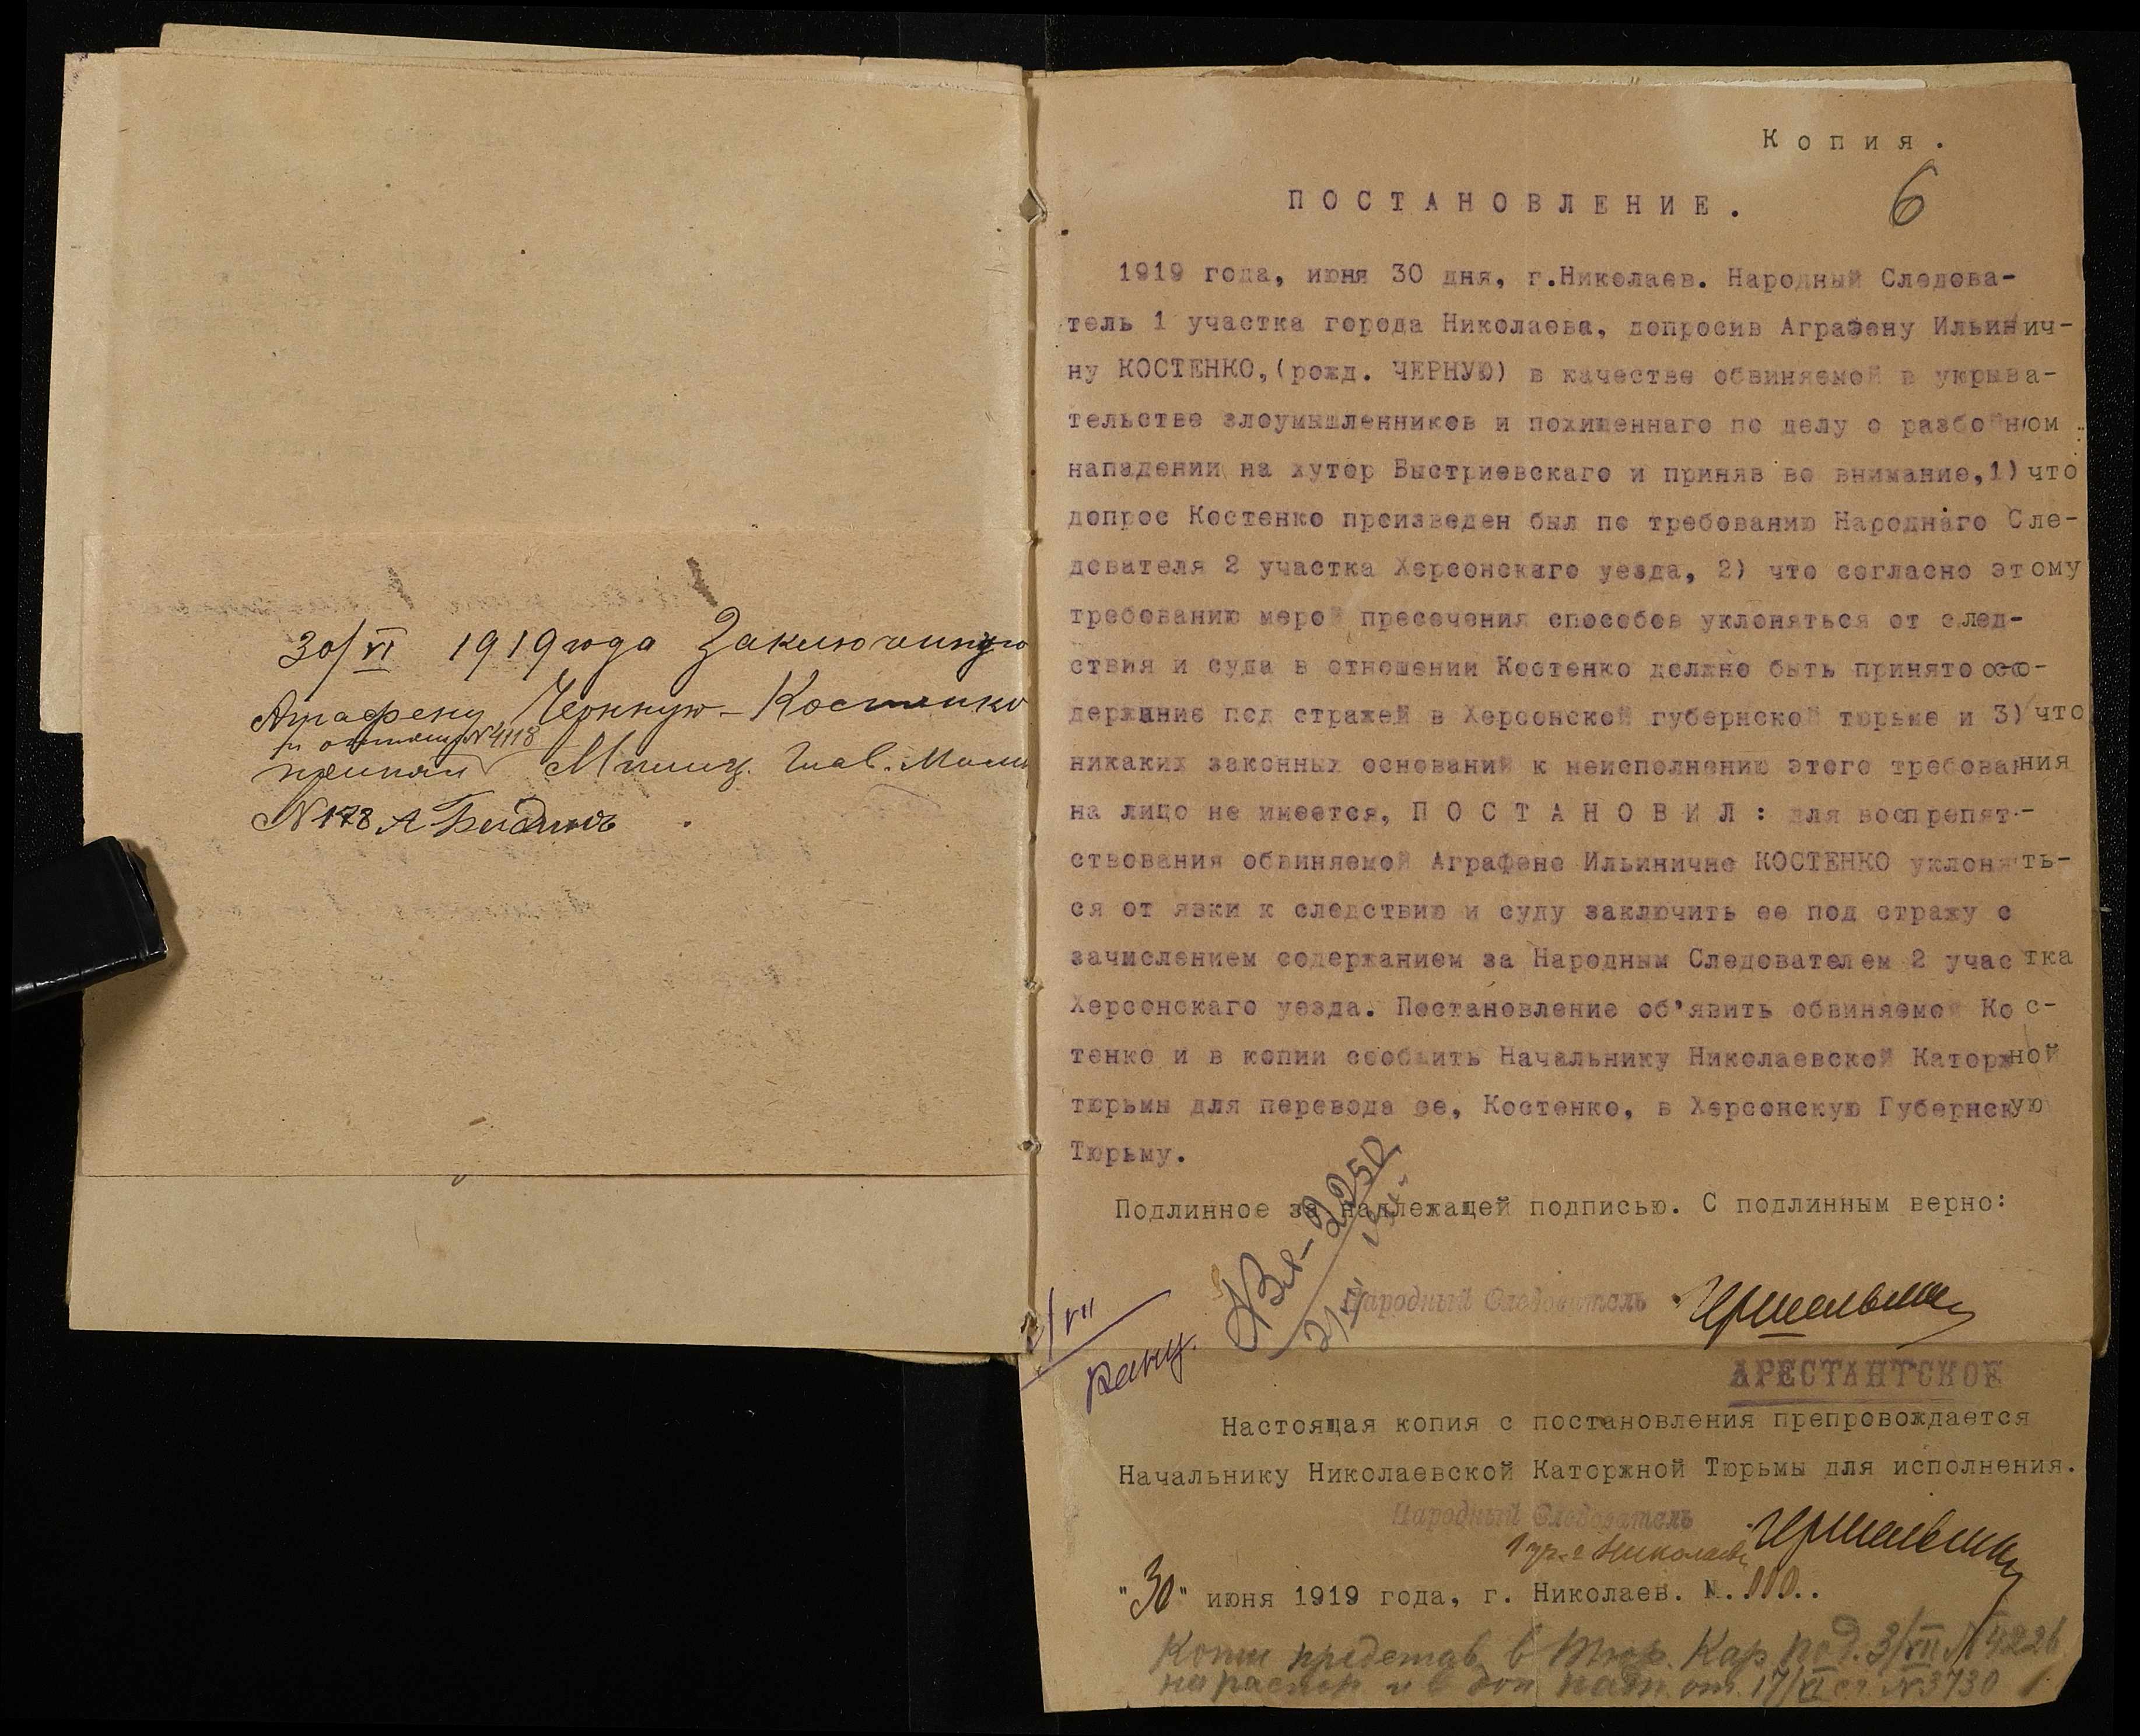 30/VI 1919 года Заключенную
Аграфену Черную-Костенко
при отношен. №4118
принял Милиц. Глав. Мили
№178 А
Копия.
6
ПОСТАНОВЛЕНИЕ.
1919 года, июня 30 дня, г.Николаев. Народный Следова-
тель 1 участка города Николаева, допросив Аграфену Ильинич-
ну КОСТЕНКО,(рожд. ЧЕРНУЮ) в качестве обвиняемой в укрыва-
тельстве злоумышленников и похищеннаго по делу о разбойном
нападении на хутор Быстриевскаго и приняв во внимание,1) что
допрос Костенко произведен был по требованию Народнаго Сле-
дователя 2 участка Херсонскаго уезда, 2) что согласно этому
требованию мерой пресечения способов уклоняться от след-
ствия и суда в отношении Костенко должно быть принято со-
держание под стражей в Херсонской губернской тюрьме и 3) что
никаких законных оснований к неисполнению этого требования
на лицо не имеется, ПОСТАНОВИЛ: для воспрепят-
ствования обвиняемой Аграфене Ильиничне КОСТЕНКО уклонять-
ся от явки к следствию и суду заключить ее под стражу с
зачислением содержанием за Народным Следователем 2 участка
Херсонскаго уезда. Постановление об'явить обвиняемой Кос-
тенко и в копии сообщить Начальнику Николаевской Каторжной
тюрьмы для перевода ее, Костенко, в Херсонскую Губернскую
Тюрьму.
Подлинное за надлежащей подписью. С подлинным верно:
2250
Народный Следователь
2/VII
Канц.
АРЕСТАНТСКОЕ
Настоящая копия с постановления препровождается
Начальнику Николаевской Каторжной Тюрьмы для исполнения.
Народный Следователь
1 уч. г. Николаева
"30" июня 1919 года, г. Николаев. №.110..
Копии представ. в Тюр. Кар. под. 3/VII №4226
на распор и в доп надп. от 17/VI с.г. №3730